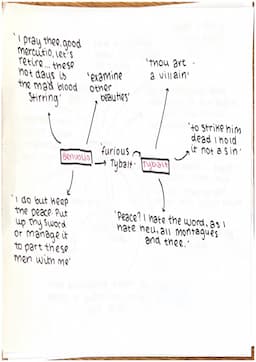 'I pray thee, good
mercutio, let's
retire... these
hot days is
the mad blood
stirring'
'examine
other
beauties'
'thou art
a villain'
Benvolio
'furious
Tybalt'
Tybalt
'to strike him
dead I hold
it not a sin'
'I do but keep
the peace. Put
up thy sword
or manage it
to part these
men with me'
'Peace? I hate the word, as I
hate hell, all montagues
and thee.'